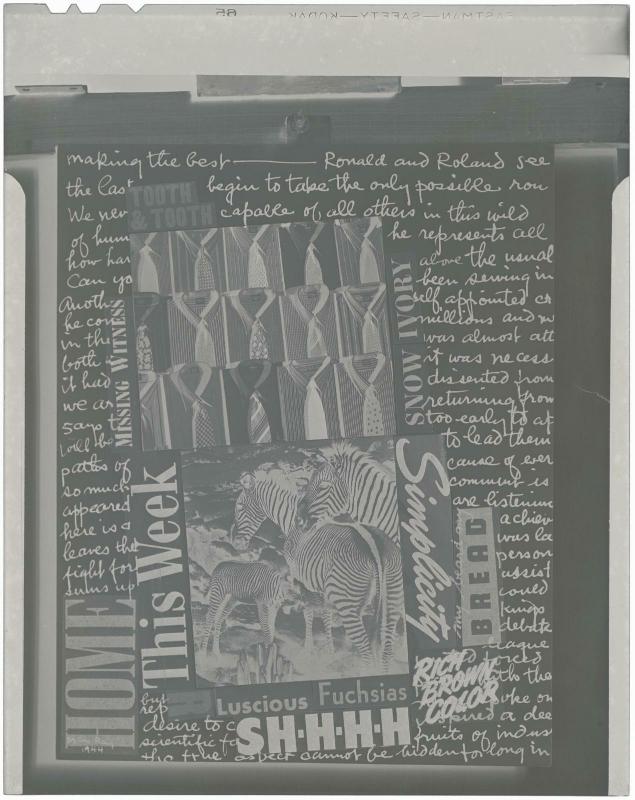 EASTMAN—SAFETY—KODAK 65
making the best — Ronald and Roland see
the last begin to take the only possible rou
TOOTH
& TOOTH
We nev capable of all others in this wild
of hum he represents all
how har above the usual
Can yo been serving in
Anoth self appointed cr
he con millions and m
in the was almost att
both it was necess
it had dissented from
we ar returning from
says t too early to at
will be to lead them
MISSING WITNESS
SNOW IVORY
paths of cause of ever
so much communit is
appeared are listening
here is a achiev
leaves the was la
fight for person
sums up assist
could
kings
debate
league
This Week
Simplicity
BREAD
HOME
RICH
BROWN
COLOR
Luscious Fuchsias
SH·H·H·H
but
rep
desire to c pired a dee
scientific fa fruits of indus
the true aspect cannot be hidden for long in
Man Ray
1944